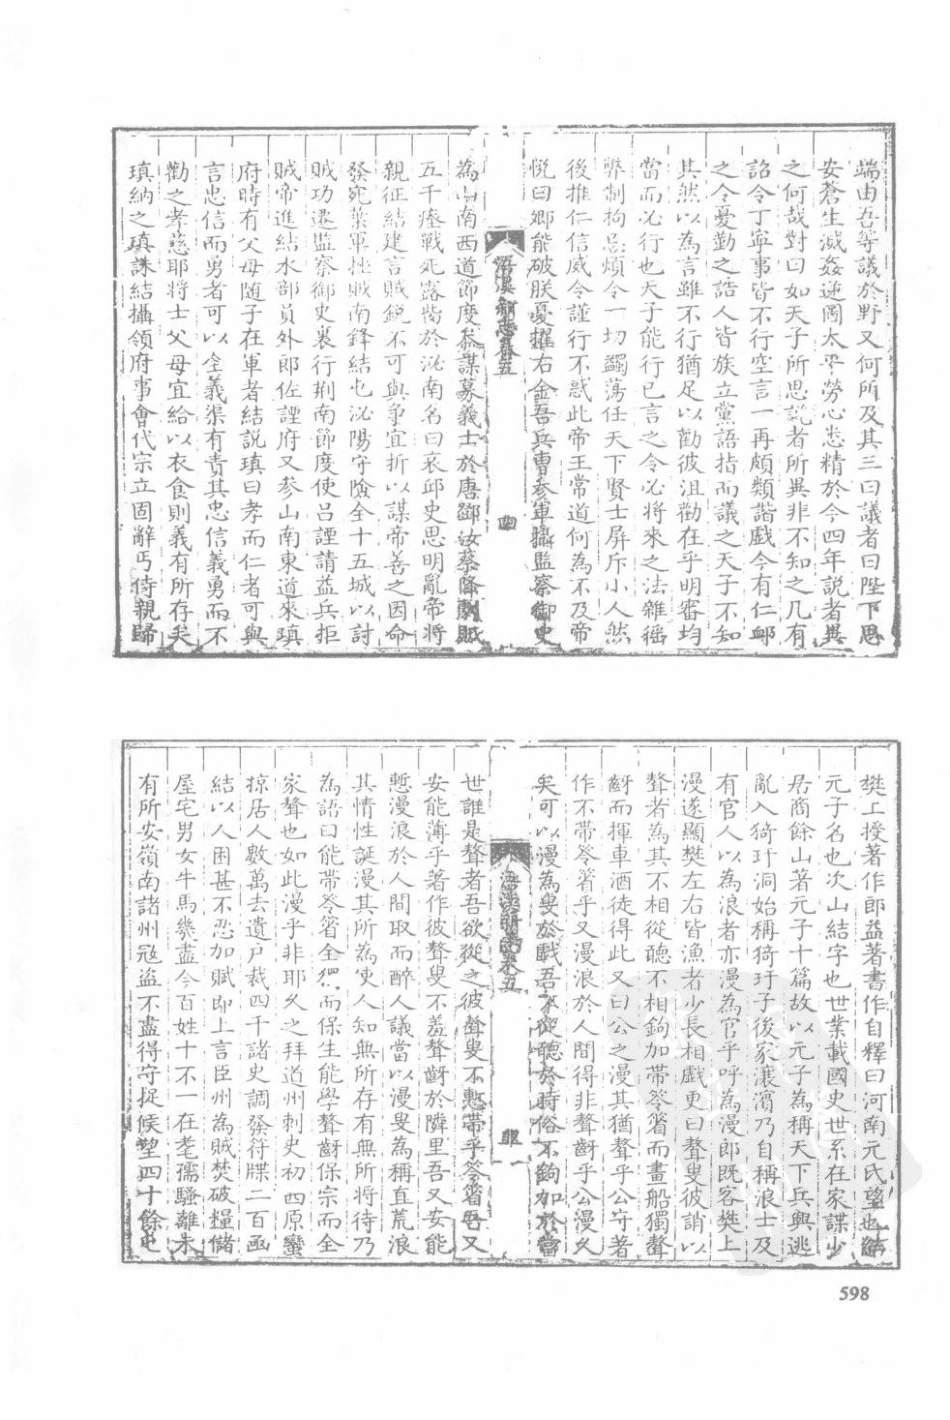 端由吾等議於野又何所及其三曰議者曰陛下思
安蒼生滅姦逆圖太平勞心悉精於今四年説者異
之何哉對曰如天子所思説者所異非不知之凡有
詔令丁寧事皆不行空言一再頗類諧戲今有仁䘏
之令憂勤之誥人皆族立黨語指而議之天子不知
其然以為言雖不行猶足以勸彼沮勸在乎明審均
當而必行也天子能行已言之令必將來之法雜徭
弊制拘忌煩令一切蠲蕩任天下賢士屏斥小人然
後推仁信威令謹行不惑此帝王常道何為不及帝
悅曰卿能破朕憂擢右金吾兵曹參軍攝監察御史
浯溪新志卷五
為山南西道節度參謀募義士於唐鄧汝蔡降劇賊
五千瘞戰死露胔於泌南名曰哀邱史思明亂帝將
親征結建言賊鋭不可與爭宜折以謀帝善之因命
發宛葉軍挫賊南鋒結屯泌陽守險全十五城以討
賊功遷監察御史裏行荆南節度使呂諲請益兵拒
賊帝進結水部員外郎佐諲府又參山南東道來瑱
府時有父母隨子在軍者結説瑱曰孝而仁者可與
言忠信而勇者可以全義渠有責其忠信義勇而不
勸之孝慈耶將士父母宜給以衣食則義有所存矣
瑱納之瑱誅結攝領府事會代宗立固辭丐侍親歸
樊上授著作郎益著書作自釋曰河南元氏望也結
元子名也次山結字也世業載國史世系在家諜少
居商餘山著元子十篇故以元子為稱天下兵興逃
亂入猗玗洞始稱猗玗子後家瀼濱乃自稱浪士及
有官人以為浪者亦漫為官乎呼為漫郎既客樊上
漫遂顯樊左右皆漁者少長相戲更曰聱叟彼誚以
聱者為其不相從聽不相鉤加帶笭箵而畫船獨聱
齖而揮車酒徒得此又曰公之漫其猶聱乎公守著
作不帶笭箵乎又漫浪於人間得非聱齖乎公漫久
矣可以漫為叟於戲吾不從聽於時俗不鉤加於當
浯溪新志卷五
世誰是聱者吾欲從之彼聱叟不慙帶乎笭箵吾又
安能薄乎著作彼聱叟不羞聱齖於隣里吾又安能
慙漫浪於人間取而醉人議當以漫叟為稱直荒浪
其情性誕漫其所為使人知無所存有無所將待乃
為語曰能帶笭箵全獨而保生能學聱齖保宗而全
家聱也如此漫乎非耶久之拜道州刺史初西原蠻
掠居人數萬去遺戶裁四千諸史調發符牒二百函
結以人困甚不忍加賦即上言臣州為賊焚破糧儲
屋宅男女牛馬幾盡今百姓十不一在耄孺騷離未
有所安嶺南諸州寇盜不盡得守捉候望四十餘屯
598